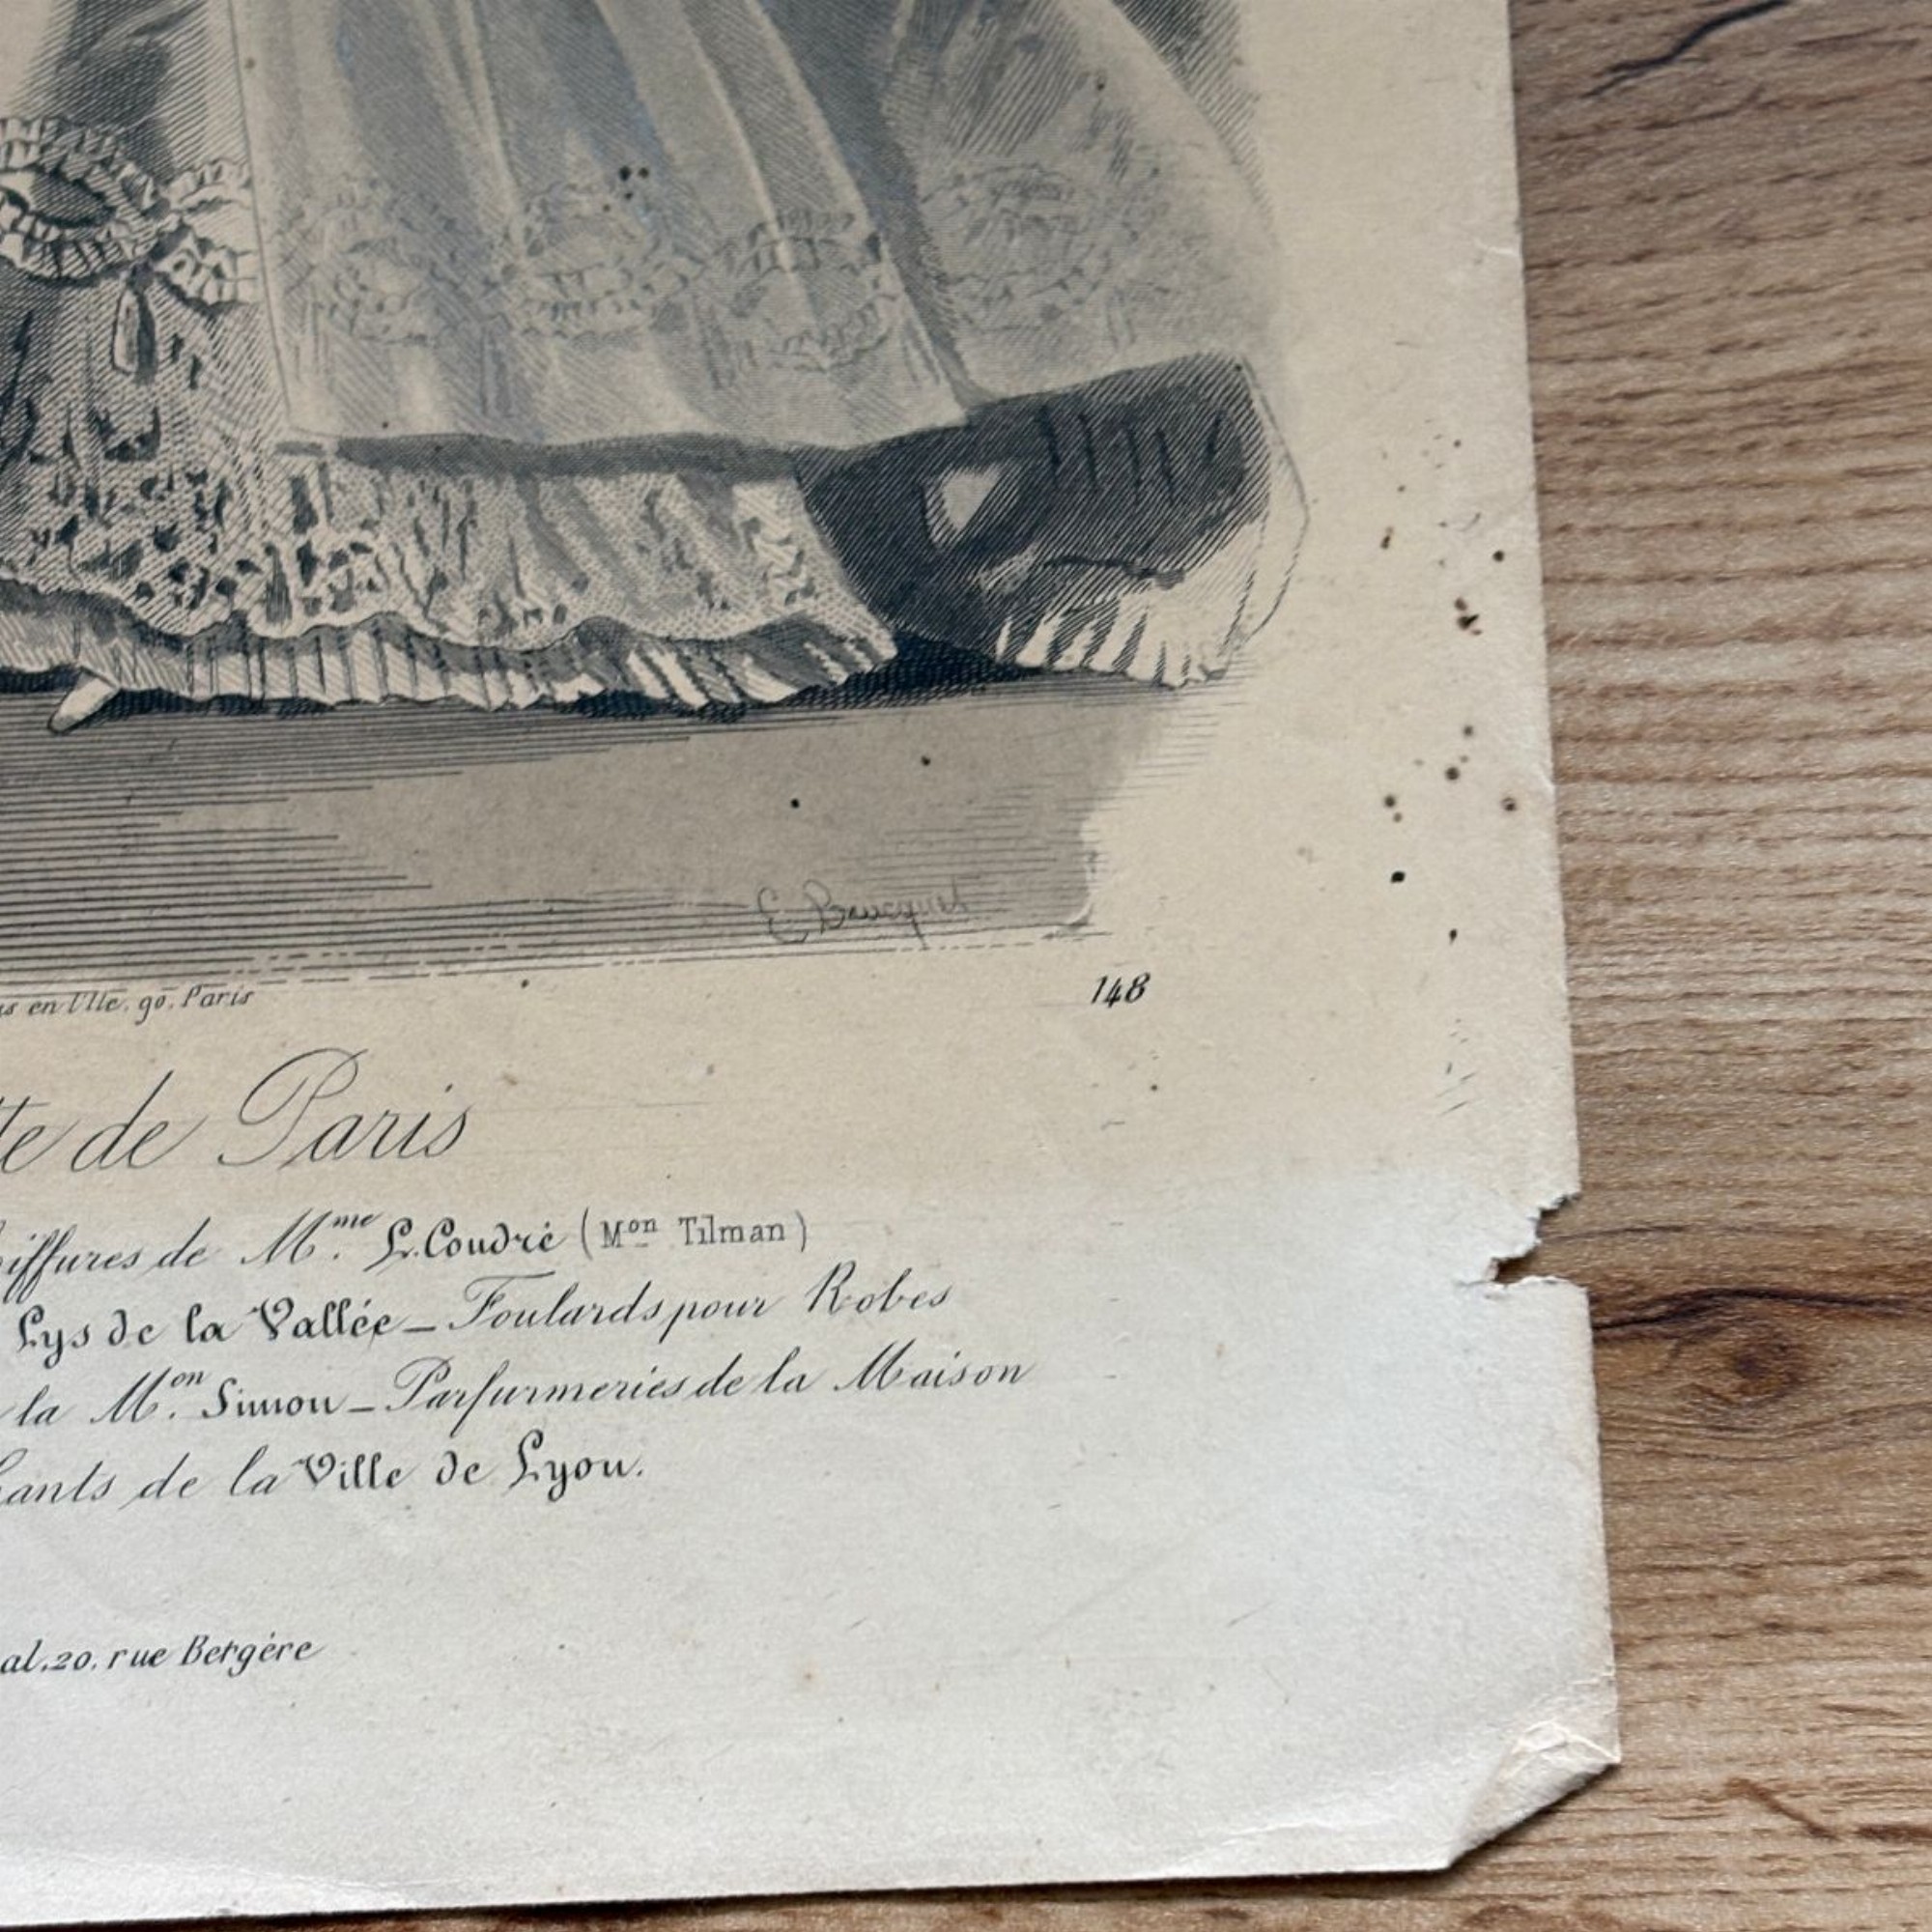 E. Bracquet
en l'Ile. 90. Paris
148
de Paris
de Mme L. Coudré (Mon Tilman)
Lys de la Vallée _ Foulards pour Robes
la Mon Simon _ Parfurmeries de la Maison
de la Ville de Lyon.
20. rue Bergère